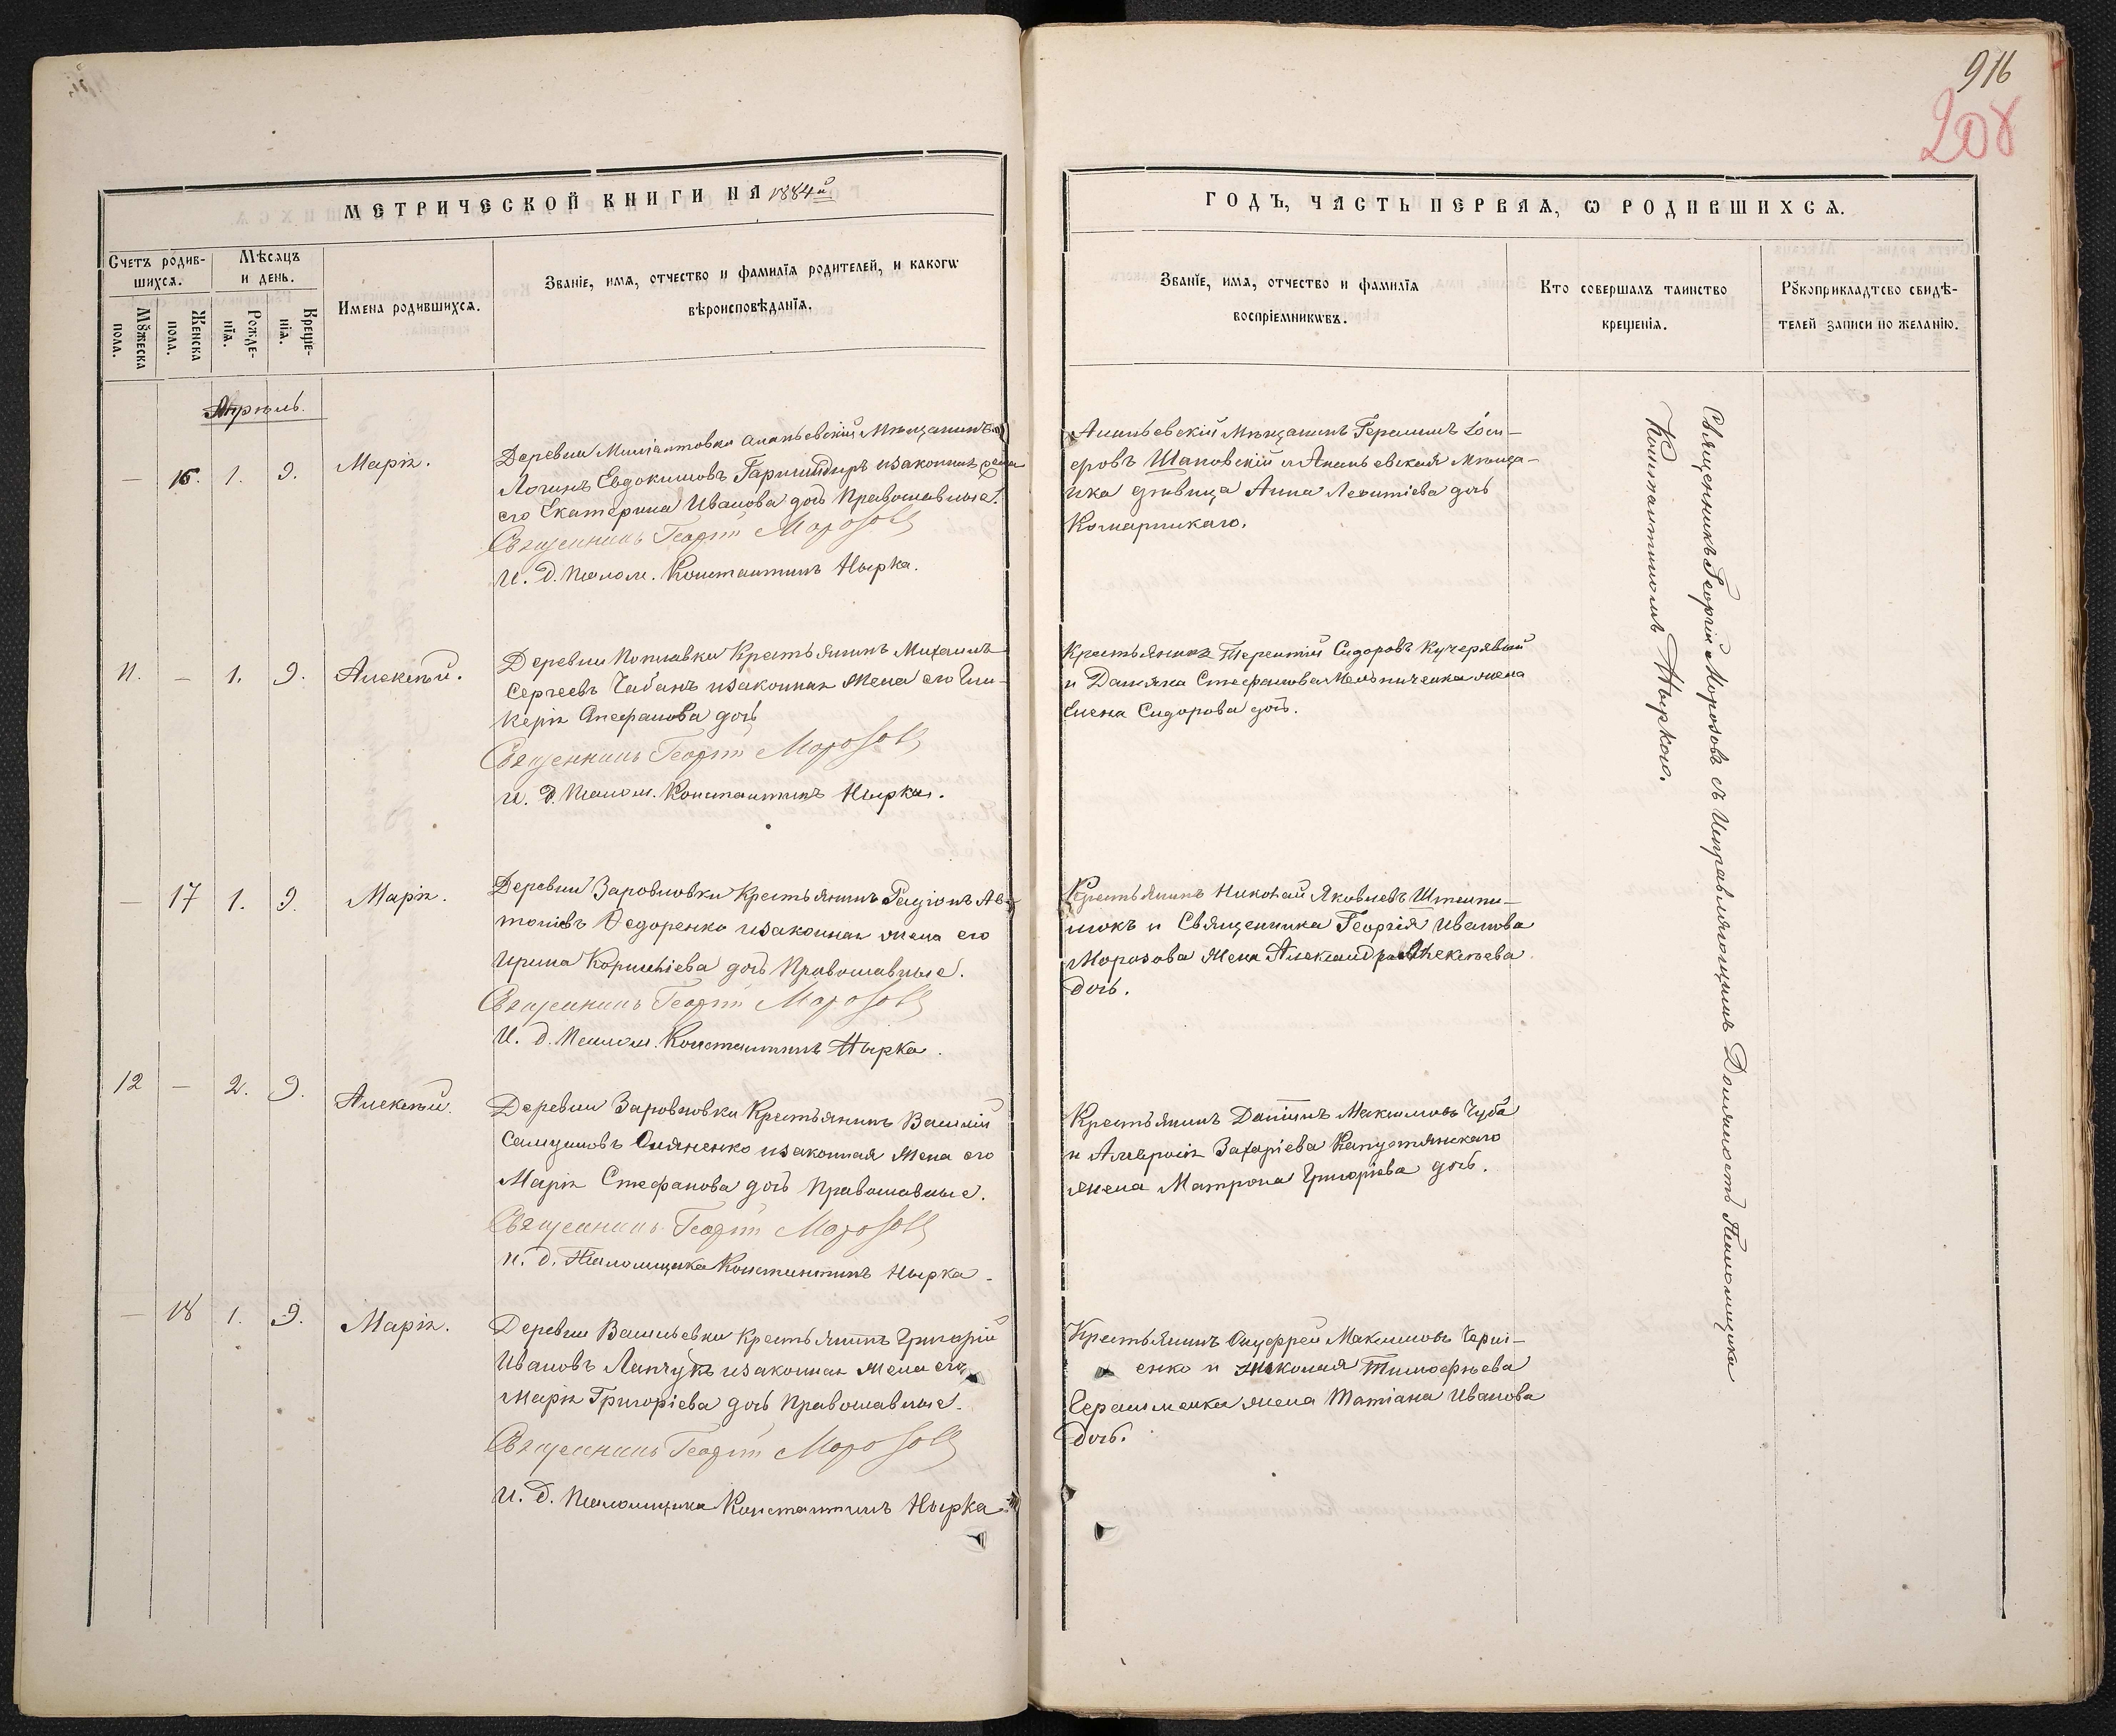 916
208
МЕТРИЧЕСКОЙ КНИГИ НА 1884й
ГОДЪ, ЧАСТЬ ПЕРВАѦ, Ѡ РОДИВШИХСѦ.
Счетъ родив-
шихсѧ.
Мѣсѧцъ
и день.
Мꙋжеска
пола.
Женска
пола.
Рожде-
нїѧ.
Креще-
нїѧ.
Имена родившихсѧ.
Званїе, имѧ, отчество и фамилїѧ родителей, и какогѡ
вѣроисповѣданїѧ.
Званїе, имѧ, отчество и фамилїѧ
воспрїемникѡвъ.
Кто совершалъ таинство
крещенїѧ.
Рꙋкоприкладтсво свидѣ-
телей записи по желанїю.
Апрѣль.
— 16. 1. 9. Марія.
Деревни ананьевскій Мѣщанинъ
Логинъ Евдокимовъ изаконная жена
его Екатерина Иванова дочь Православные.
Священникъ Георгій Морозовъ
И. Д. Псалом. Константинъ Нырка.
Ананьевскій Мѣщанинъ Герасимъ Іоси-
фовъ Шаповскій и Ананьевская Мѣща-
нка дѣвица Анна Леонтіева дочь
Комарницкаго.
11. — 1. 9. Алексѣй.
Деревни Поплавки Крестьянинъ Михаилъ
Сергеевъ Чабанъ изаконная жена его Гли-
керія Стефанова дочь
Священникъ Георгій Морозовъ
И. Д. Псалом. Константинъ Нырка.
Крестьянинъ Терентій Сидоровъ Кучерявый
и Даміяна Стефанова Мельниченка жена
Елена Сидорова дочь.
— 17 1. 9. Марія.
Деревни Заровновки Крестьянинъ Родіонъ Ав-
тоніевъ Федоренко изаконная жена его
Ирина Корниліева дочь Православные.
Священникъ Георгій Морозовъ
И. д. Псалом. Константинъ Нырка.
Крестьянинъ Николай Яковлевъ
и Священника Георгія Иванова
Морозова жена Александра Алексѣева
дочь.
12 — 2. 9. Алексѣй.
Деревни Заровновки Крестьянинъ Василій
Самуиловъ Ониненко изаконная жена его
Марія Стефанова дочь Православные.
Священникъ Георгій Морозовъ
и. д. Псаломщика Константинъ Нырка
Крестьянинъ Даніилъ Максимовъ Чуба
и Амвросія Захаріева Капустянскаго
жена Матрона Григоріева дочь.
— 18 1. 9. Марія.
Деревни Васильевки Крестьянинъ Григорій
Ивановъ Лапчукъ изаконная жена его
Марія Григоріева дочь Православные.
Священникъ Георгій Морозовъ
И. Д. Псаломщика Константинъ Нырка
Крестьянинъ Онуфрей Максимовъ Черни-
енко и Николая Тимофѣева
Герасименка жена Татіана Иванова
дочь.
Священникъ Георгій Морозовъ съ Исправляющимъ Должность Псаломщика
Константиномъ Ныркою.